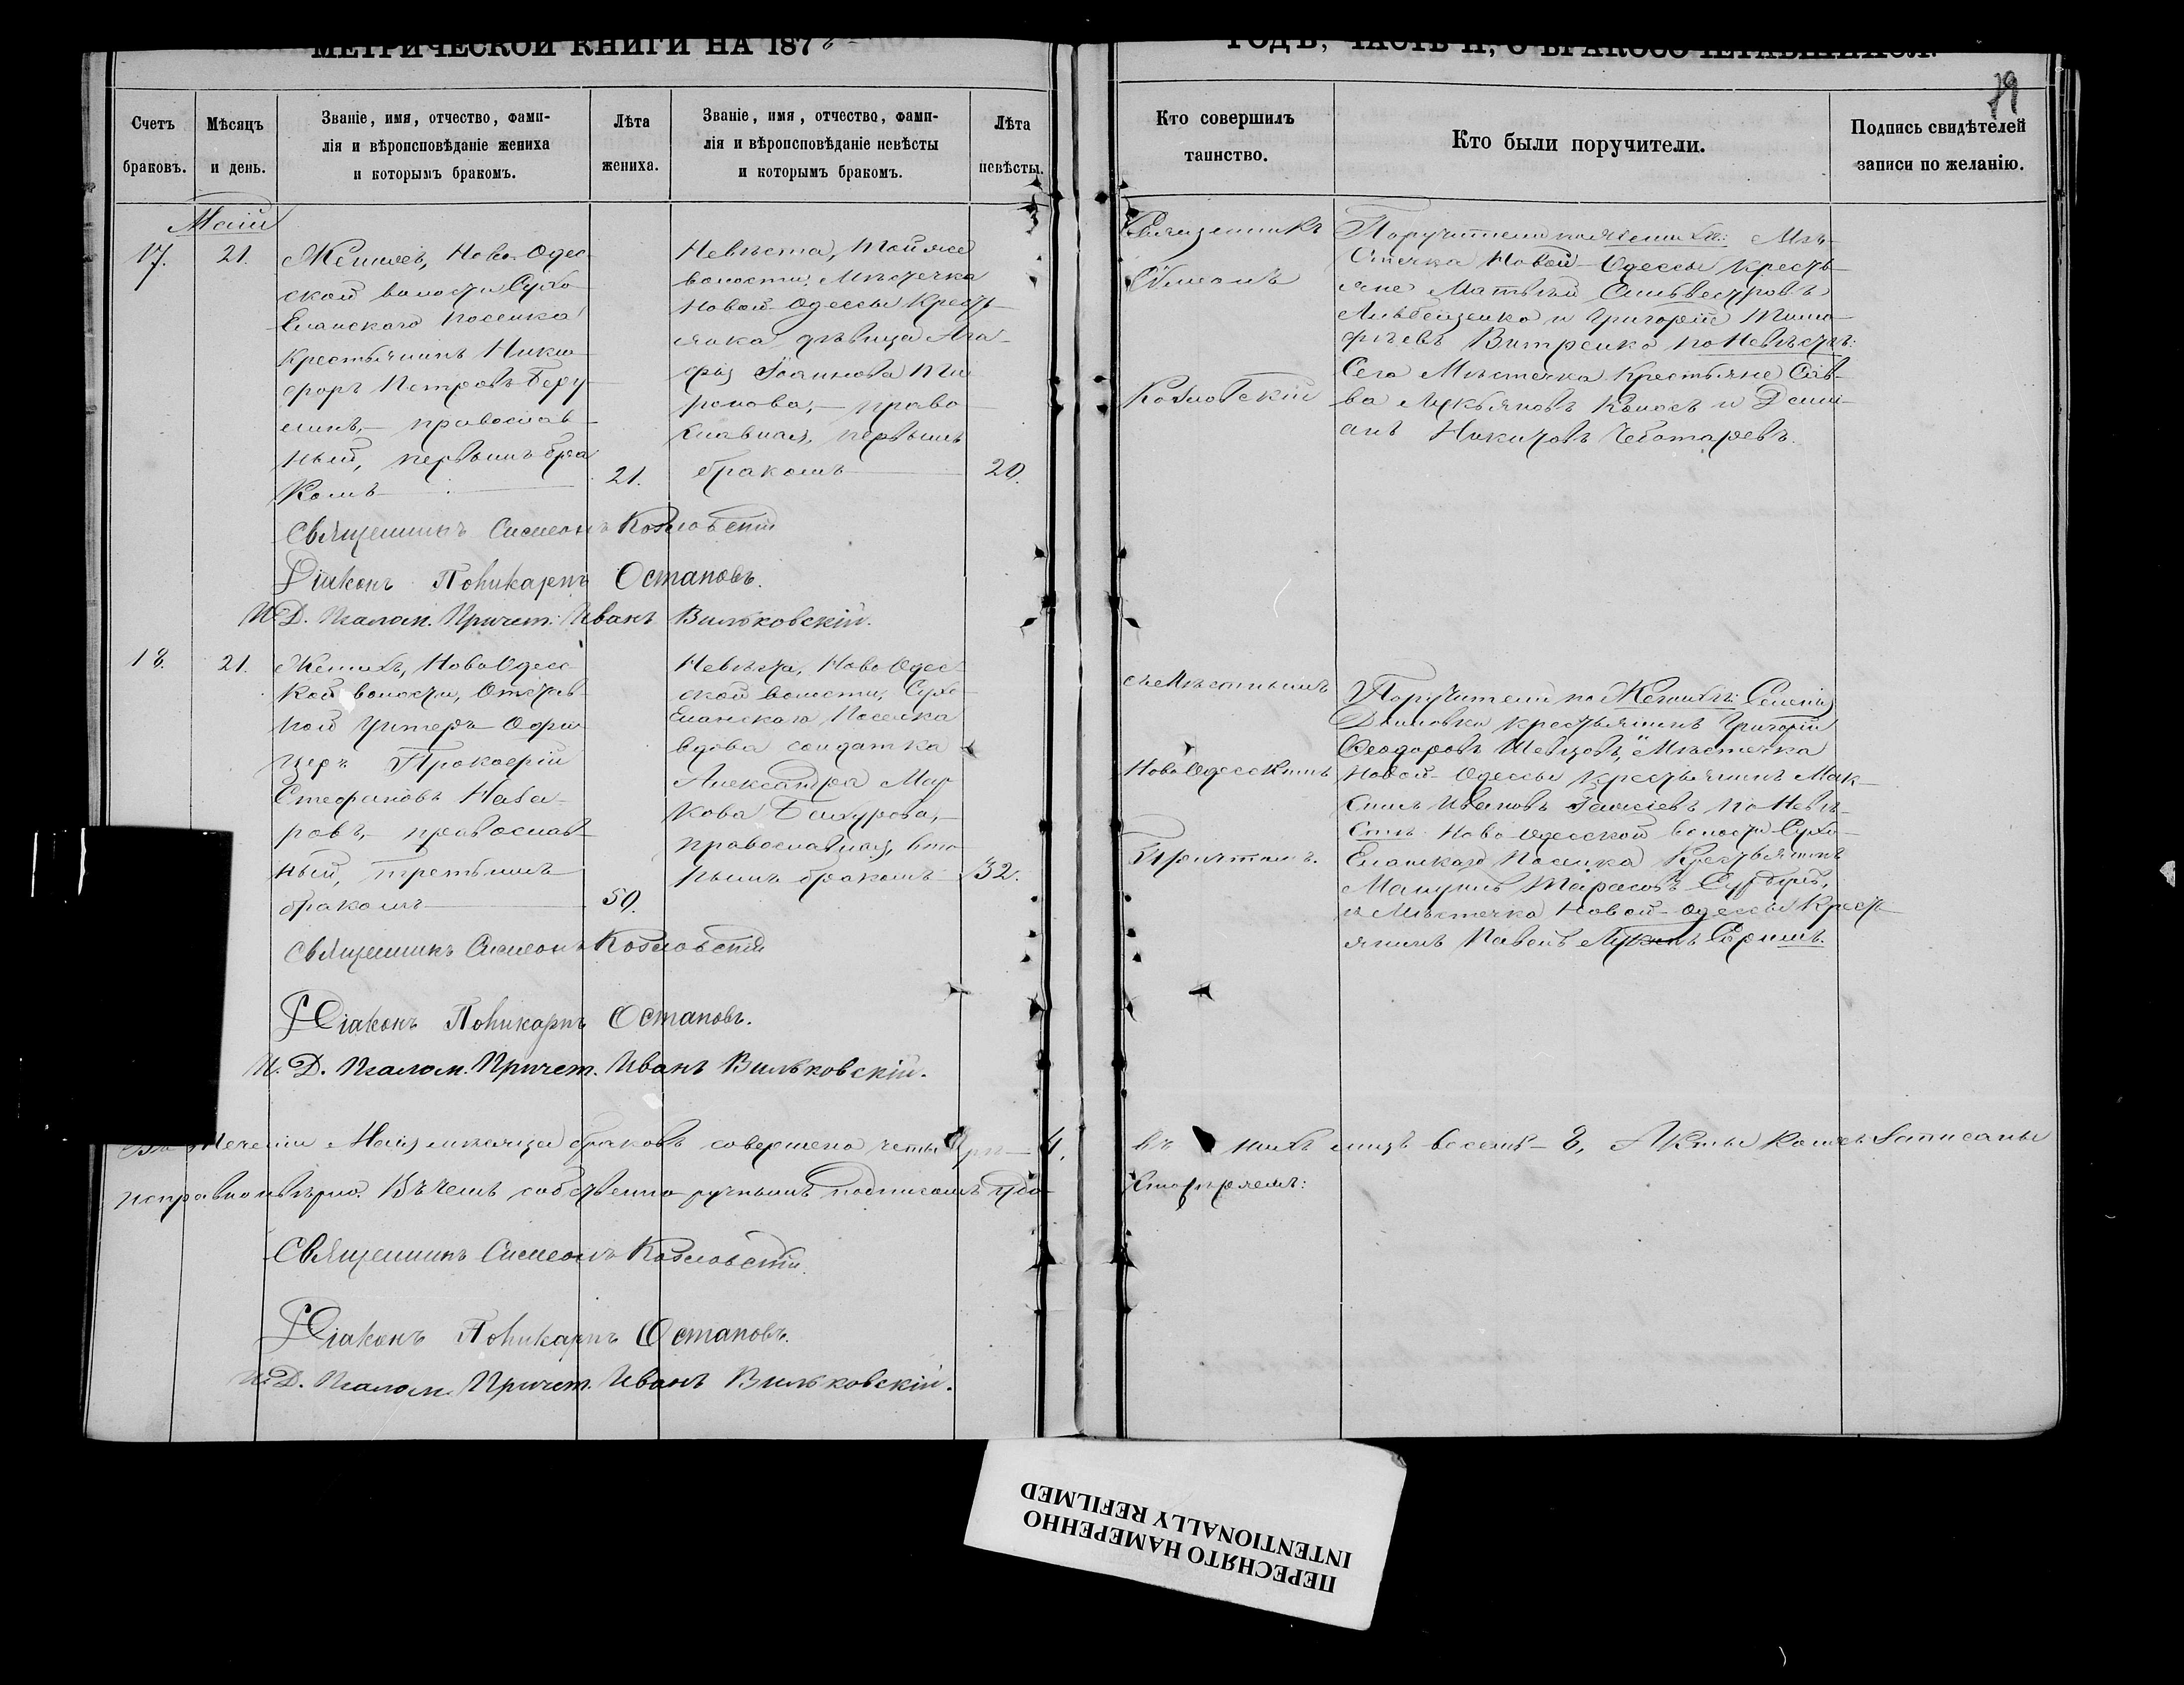 МЕТРИЧЕСКОЙ КНИГИ НА 187
ГОДЪ, ЧАСТЬ II, О БРАКОСОЧЕТАВШИХСЯ.
79
Счетъ браковъ.
Мѣсяцъ и день.
Званіе, имя, отчество, фами-
лія и вѣроисповѣданіе жениха
и которымъ бракомъ.
Лѣта жениха.
Званіе, имя, отчество, фами-
лія и вѣроисповѣданіе невѣсты
и которымъ бракомъ.
Лѣта невѣсты.
Кто совершилъ
таинство.
Кто были поручители.
Подпись свидѣтелей
записи по желанію.
Маій
17.
21.
Женихъ, Ново-Одес-
ской волости Сухо
Еланского поселка
крестьянинъ Ники-
форъ Петровъ
православ-
ный, первымъ бра
комъ
21.
Невѣста, той же
волости, мѣстечка
Новой-Одессы кресть-
янка дѣвица Ага-
фія Іоаннова Ми
ронова, — право
славная, первымъ
бракомъ
20.
Священникъ
Симеонъ
Козловскій
Поручители по женихѣ: Мѣ-
стечка Новой-Одессы кресть-
яне Матѳей Сильвестровъ
и Григорій Тимо-
фѣевъ Витренко по Невѣстѣ:
Сего мѣстечка крестьяне Сав-
ва Лукьяновъ Коносъ и Деми-
анъ Никитовъ Чеботаревъ.
Священникъ Симеонъ Козловскій
Діаконъ Поликарпъ Остаповъ.
И. Д. Псалом. Причет. Иванъ Вильковскій.
18.
21.
Женихъ, Ново Одесс
кой волости, Отстав-
ной Унтеръ Офи
церъ Прокофій
Стефановъ Наза-
ровъ, — православ
ный, третьимъ
бракомъ
50.
Невѣста, Ново Одес-
ской волости, Сухо
Еланскаго поселка
вдова солдатка
Александра Мар
кова
православная, вто
рымъ бракомъ
32.
съ мѣстнымъ
Ново Одесскимъ
Причтомъ.
Поручители по Женихѣ: Селенія
крестьянинъ Григорій
Ѳеодоровъ Шевцовъ, и Мѣстечка
Новой-Одессы крестьянинъ Мак-
симъ Ивановъ по Невѣ-
стѣ: Ново Одесской волости Сухо
Еланскаго поселка Крестьянинъ
Тарасовъ
и Мѣстечка Новой-Одессы Кресть-
янинъ Павелъ
Священникъ Симеонъ Козловскій
Діаконъ Поликарпъ Остаповъ.
И. Д. Псалом. Причет. Иванъ Вильковскій.
Въ теченіи Маія мѣсяца браковъ совершено четыре — 4. въ нихъ лицъ восемь — 8, Акты коихъ записаны
исправно и вѣрно. Въ чемъ собственно ручнымъ подписомъ
Священникъ Симеонъ Козловскій
Діаконъ Поликарпъ Остаповъ.
И. Д. Псалом. Причет. Иванъ Вильковскій.
ПЕРЕСНЯТО НАМЕРЕННО
INTENTIONALLY REFILMED